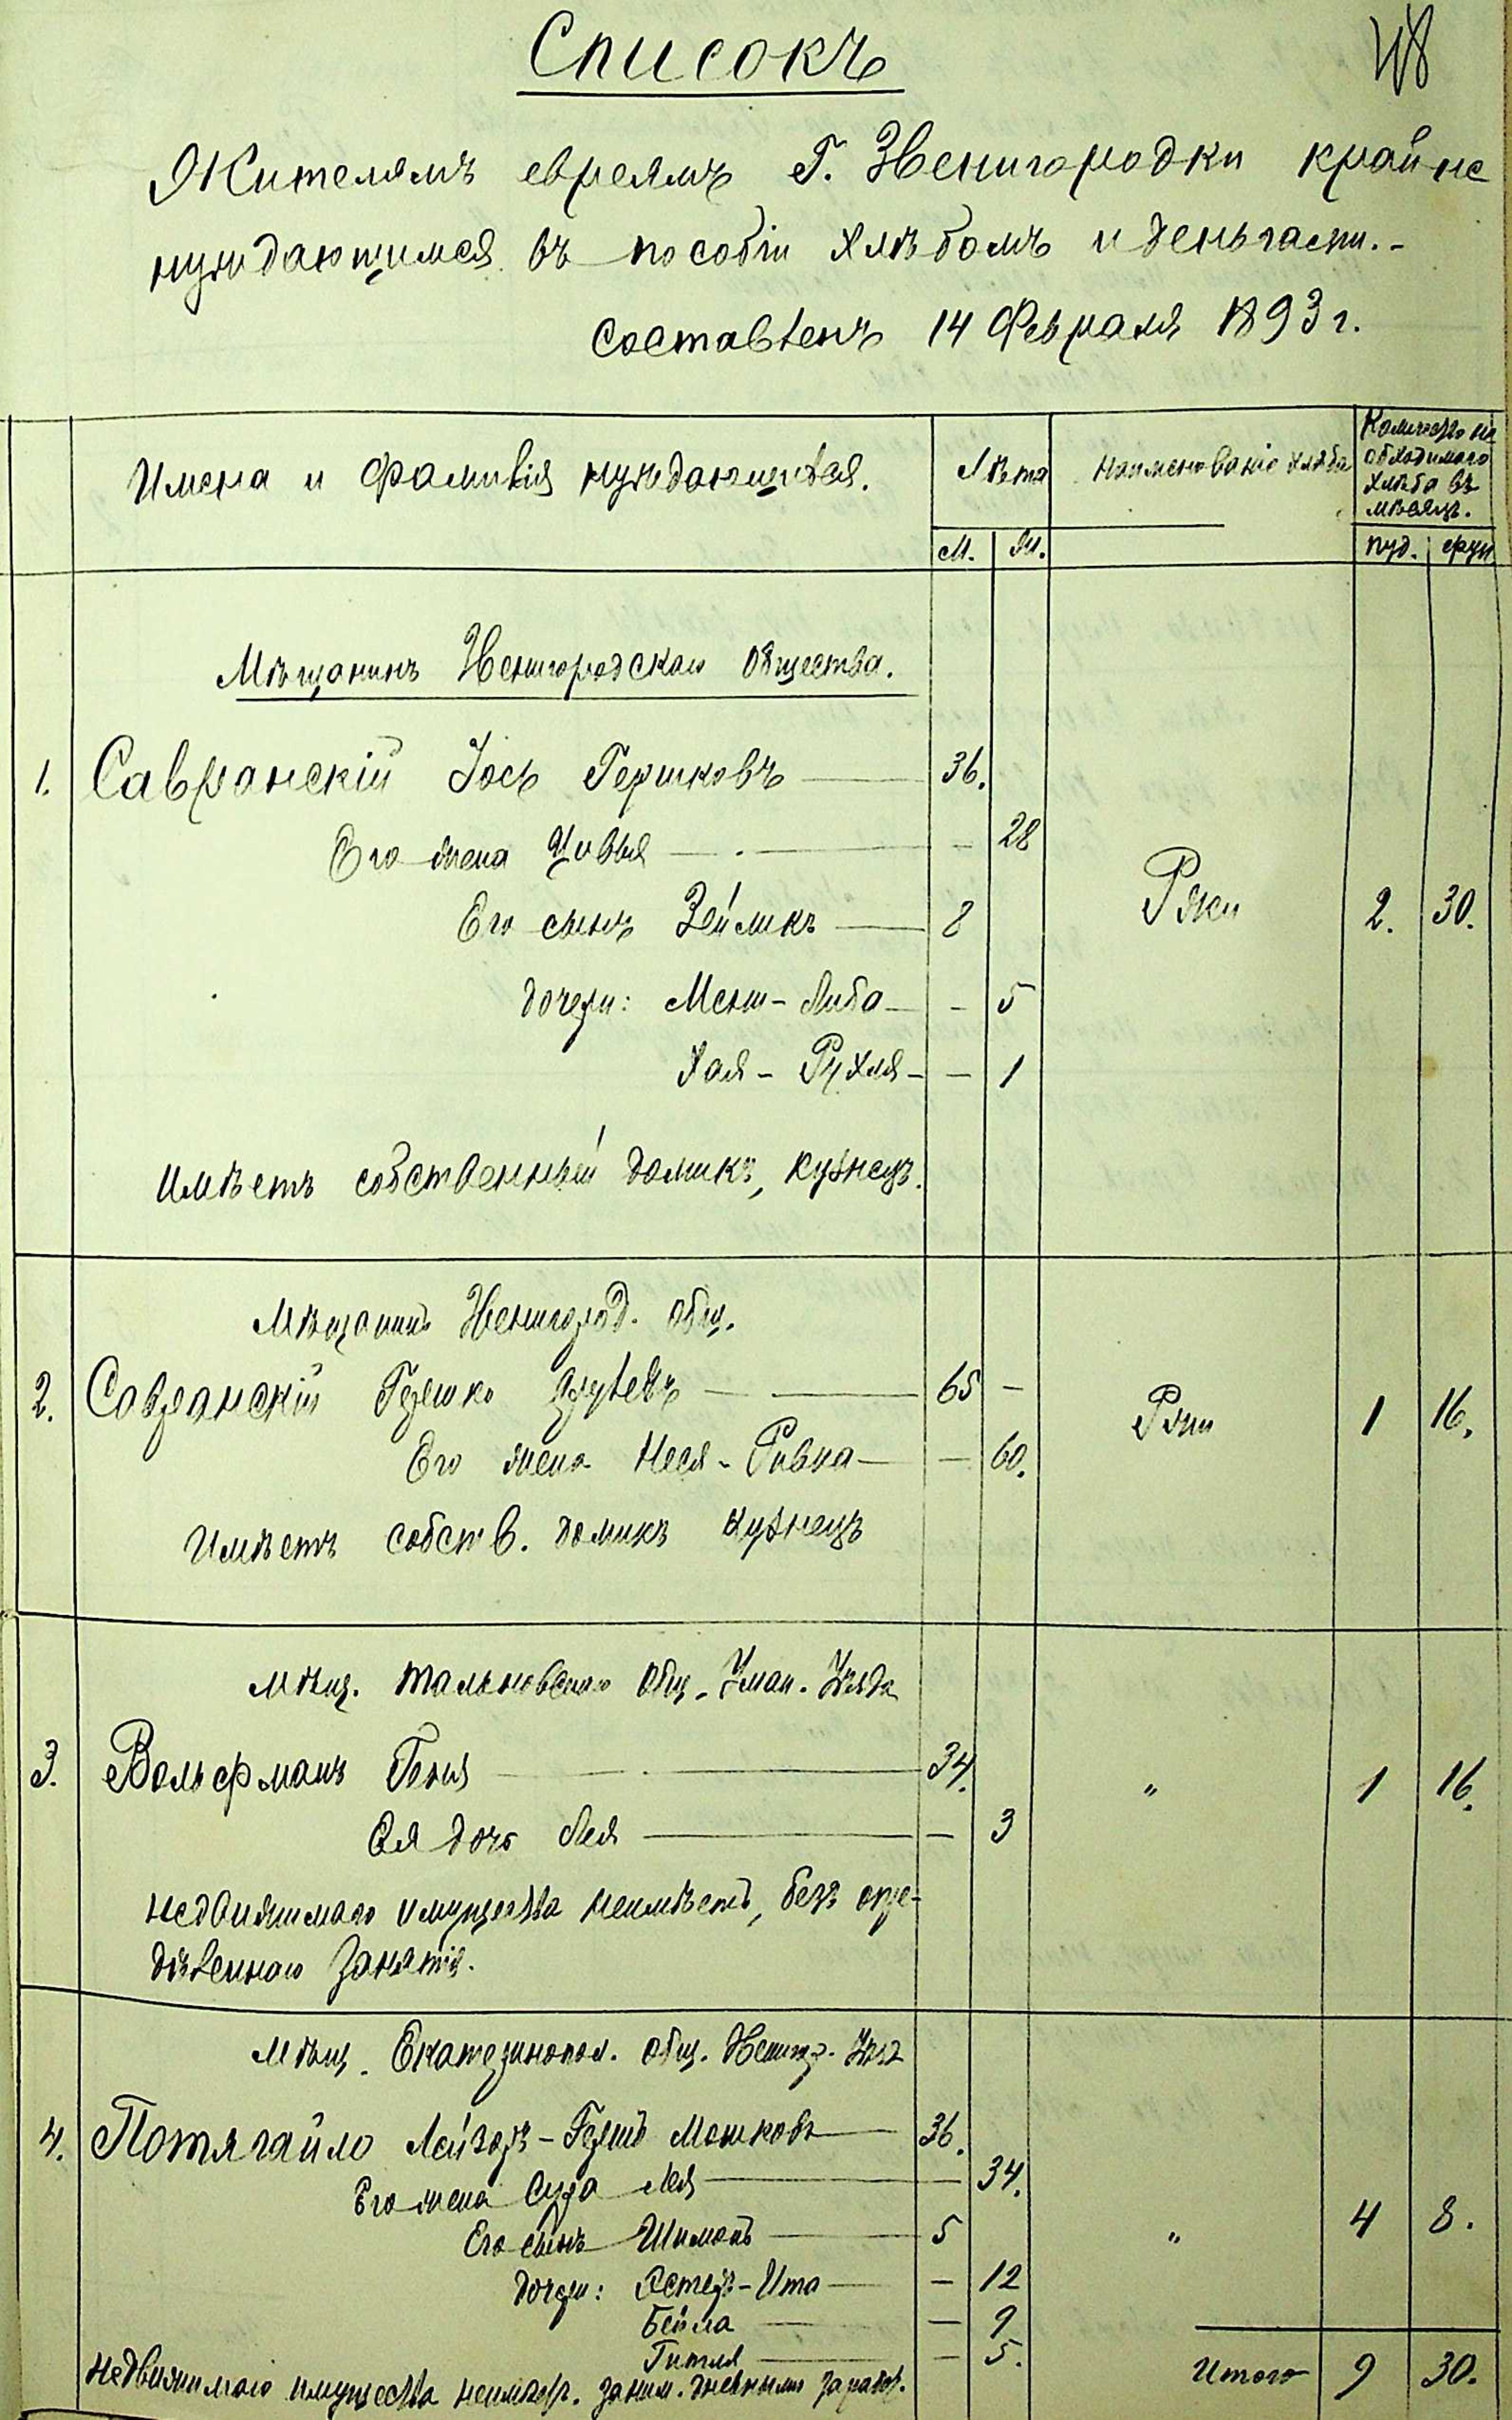 Списокъ
48
Жителямъ евреямъ г. Звенигородки крайне
нуждающимся въ пособіи хлѣбомъ и деньгами.-
Составленъ 14 Февраля 1893 г.
Имена и Фамиліи нуждающихся.
Лѣта
Наименованіе хлѣба
Количество не
обходимаго
хлѣба въ
мѣсяцъ.
М. Ж.
пуд. фун.
Мѣщанинъ Звенигородскаго общества.
1. Савранскій Іось Гершковъ — 36.
Его жена Цивья — 28
Его сынъ Зейликъ — 8
Ржи 2. 30.
дочери: Мени-Либа — 5
Хая-Рухля — 1
Имѣетъ собственный домикъ, кузнецъ.
Мѣщанинъ Звенигород. общ.
2. Савранскій Гершко — 65 —
Ржи 1 16.
Его жена Неся-Ривка — 60.
Имѣетъ собств. домикъ кузнецъ
Мѣщ. Тальновскаго общ. Уман. Уѣзда
3. Вольфманъ Геня — 34.
" 1 16.
Ея дочь Лея — 3
недвижимаго имущества неимѣетъ, безъ опре-
дѣленнаго занятія.
Мѣщ. Екатеринопол. общ. Звениг. Уѣз
4. Потягайло Лейзоръ-Гершъ Мошковъ — 36.
Его жена Сура Лея — 34.
Его сынъ Шимонъ — 5
" 4 8.
дочери: Эстеръ-Ита — 12
Бейла — 9
Гитля — 5.
недвижимаго имущества неимѣет. заним. дневными заработ.
Итого 9 30.